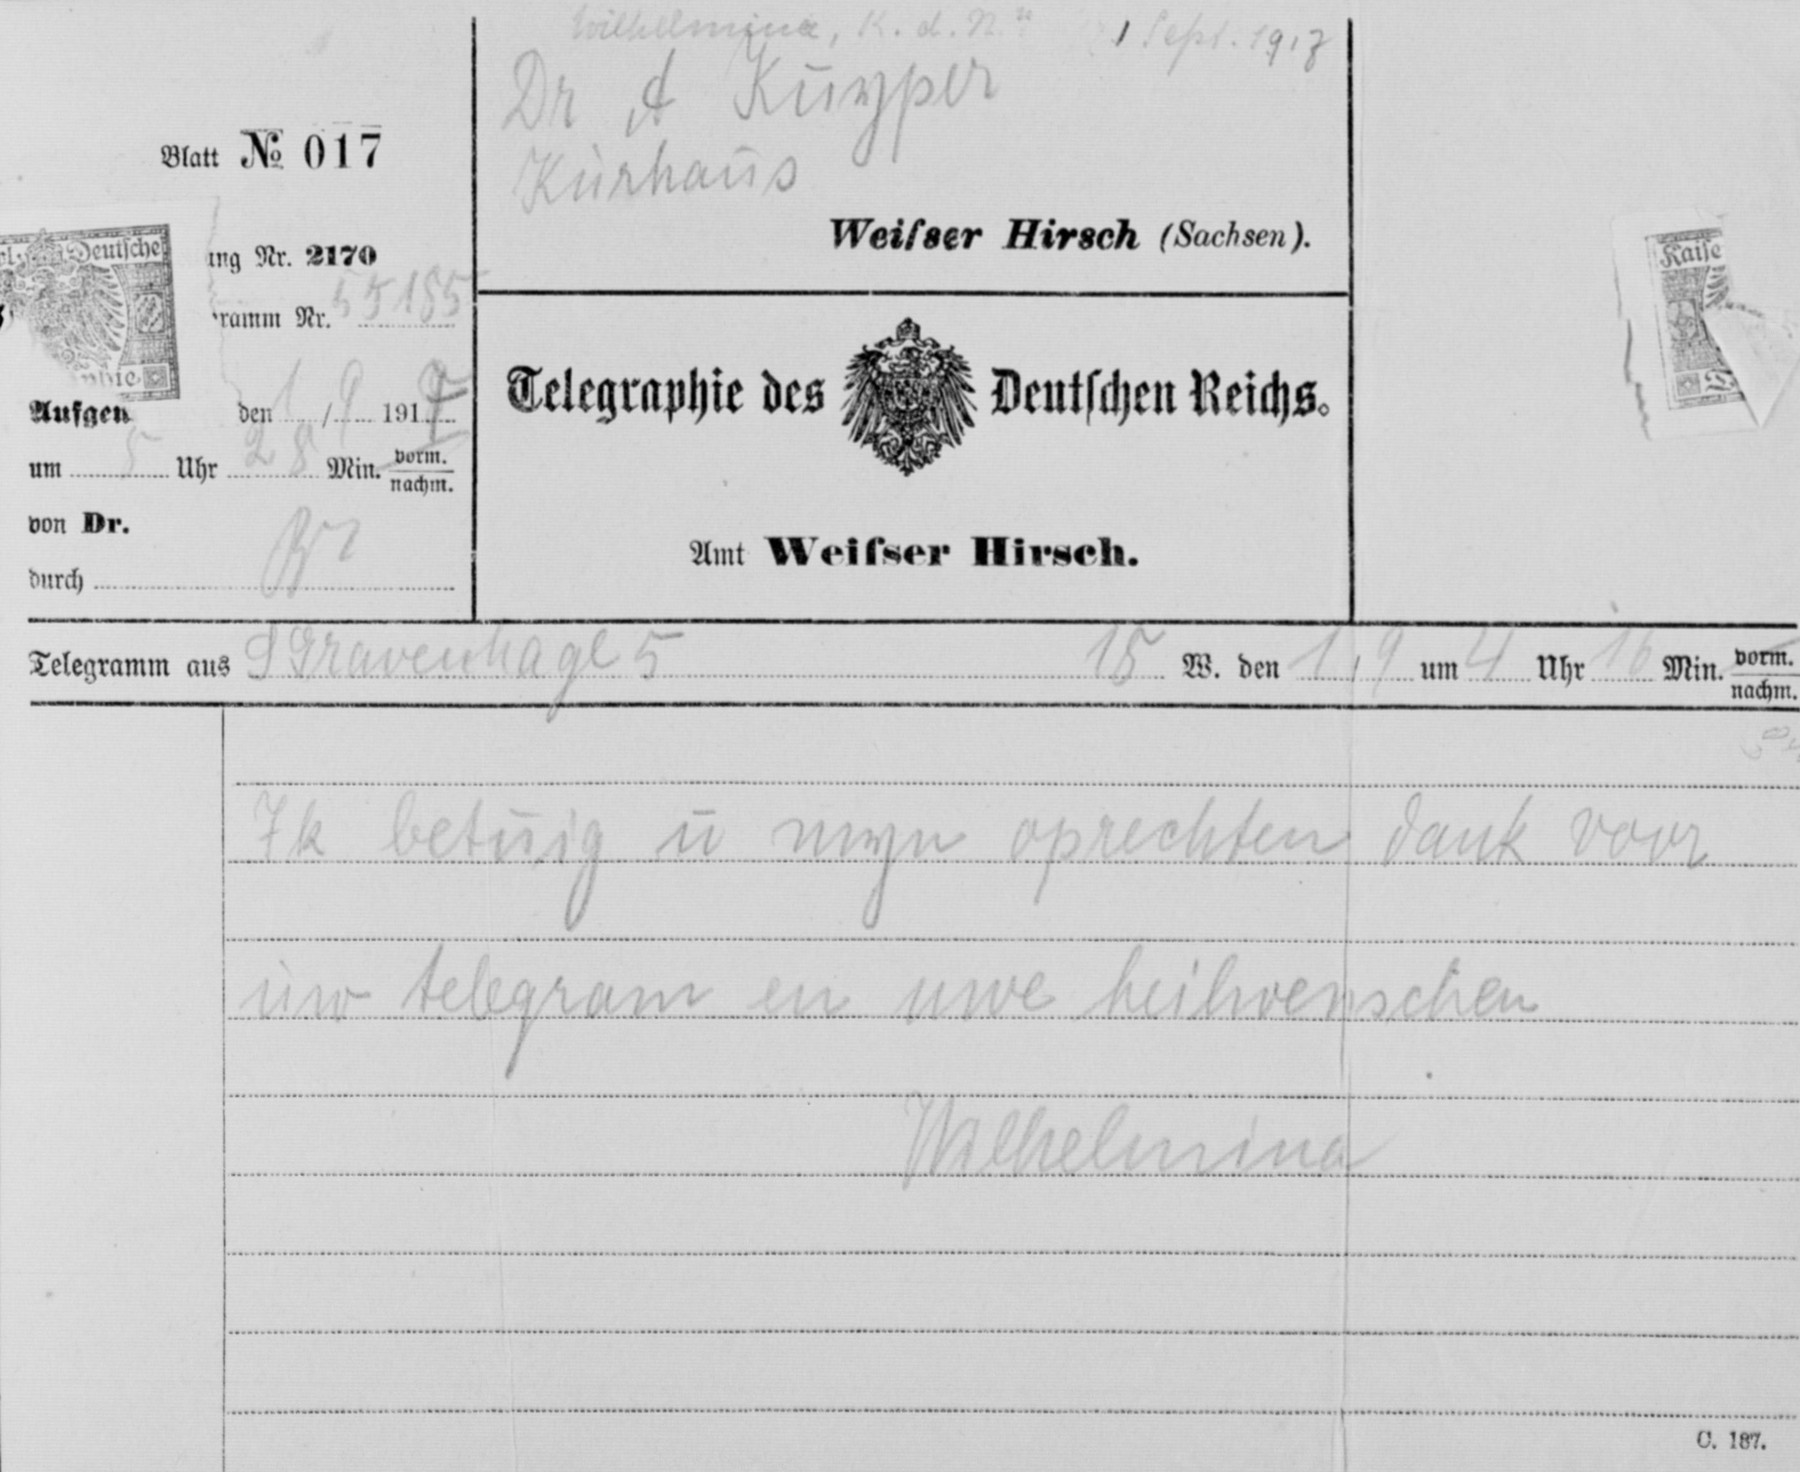 Wilhelmina, K. d. N. 1 Sept. 1917
Dr A Kuyper
Kurhaus
Weiſser Hirsch (Sachsen).
Blatt № 017
ng Nr. 2170
ramm Nr. 55185
Deutſche
phie
Kaiſe
Aufgen den 1/9 1917
um 5 Uhr 28 Min. vorm.
nachm.
von Dr.
durch
Telegraphie des Deutſchen Reichs.
Amt Weiſser Hirsch.
Telegramm aus S Gravenhage 5 15 W. den 1/9 um 4 Uhr 16 Min. vorm.
nachm.
Ik betuig u myn oprechten dank voor
uw telegram en uwe heilwenschen
Wilhelmina
C. 187.